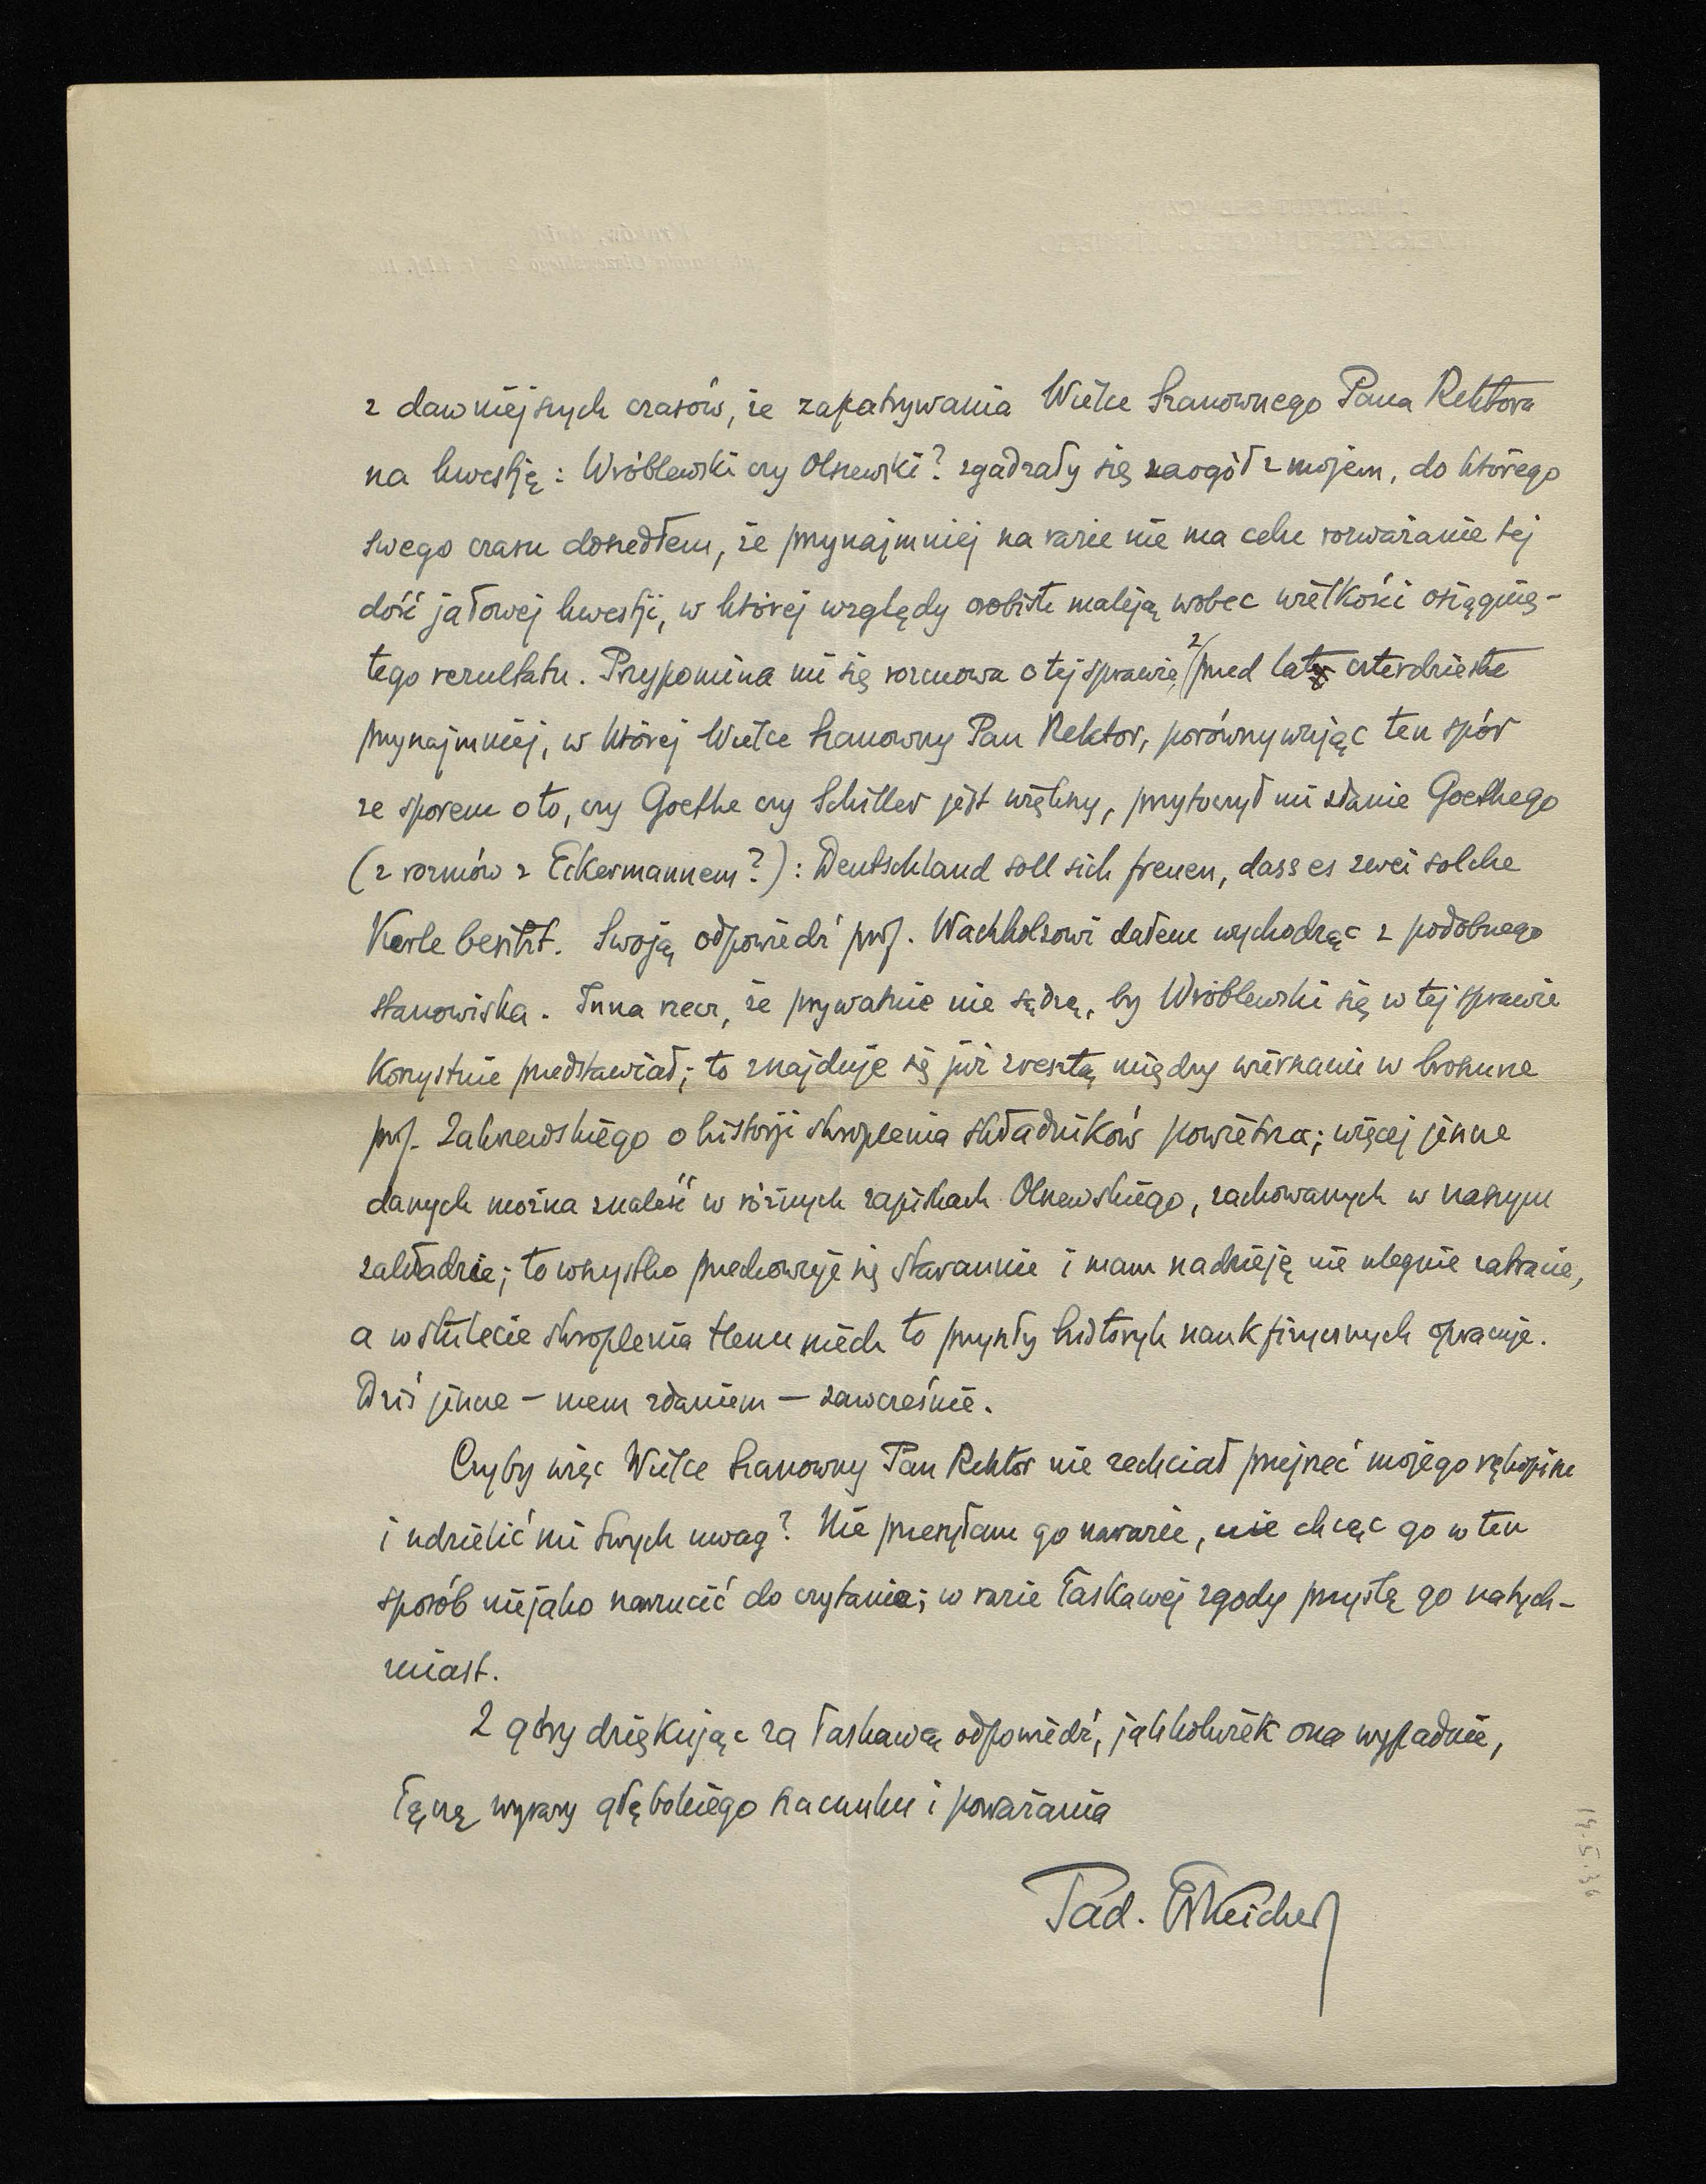 z dawniejszych czasów, że zapatrywania Wielce Szanownego Pana Rektora
na kwestję: Wróblewski czy Olszewski? zgadzały się naogół z mojem, do którego
swego czasu doszedłem, że przynajmniej na razie nie ma celu rozważanie tej
dość jałowej kwestji, w której względy osobiste maleją wobec wielkości osiągnię-
tego rezultatu. Przypomina mi się rozmowa o tej sprawie z przed lat czterdziestu
przynajmniej, w której Wielce Szanowny Pan Rektor, porównywując ten spór
ze sporem o to, czy Goethe czy Schiller jest większy, przytoczył mi zdanie Goethego
(z rozmów z Eckermannem?): Deutschland soll sich freuen, dass es zwei solche
Kerle besitzt. Swoją odpowiedź prof. Wachholzowi dałem wychodząc z podobnego
stanowiska. Inna rzecz, że prywatnie nie sądzę, by Wróblewski się w tej sprawie
korzystnie przedstawiał; to znajduje się już zresztą między wierszami w broszurze
prof. Zakrzewskiego o historji skroplenia składników powietrza; więcej jeszcze
danych można znaleść w różnych zapiskach Olszewskiego, zachowanych w naszym
zakładzie; to wszystko przechowuje się starannie i mam nadzieję nie ulegnie zatracie,
a w stulecie skroplenia tlenu niech to przyszły historyk nauk fizycznych opracuje.
Dziś jeszcze – mem zdaniem – zawcześnie.
Czyby więc Wielce Szanowny Pan Rektor nie zechciał przejrzeć mojego rękopisu
i udzielić mi Swych uwag? Nie przesyłam go narazie, nie chcąc go w ten
sposób niejako narzucić do czytania; w razie łaskawej zgody przyślę go natych-
miast.
Z góry dziękując za łaskawą odpowiedź, jakkolwiek ona wypadnie,
łączę wyrazy głębokiego szacunku i poważania
Tad. Estreicher
14.5.36